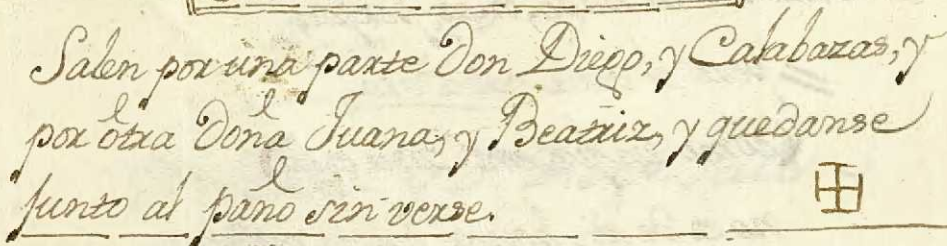 Salen por una parte Don Diego, y Calabazas, y
por otra Doña Juana, y Beatriz, y quedanse
junto al paño sin verse.